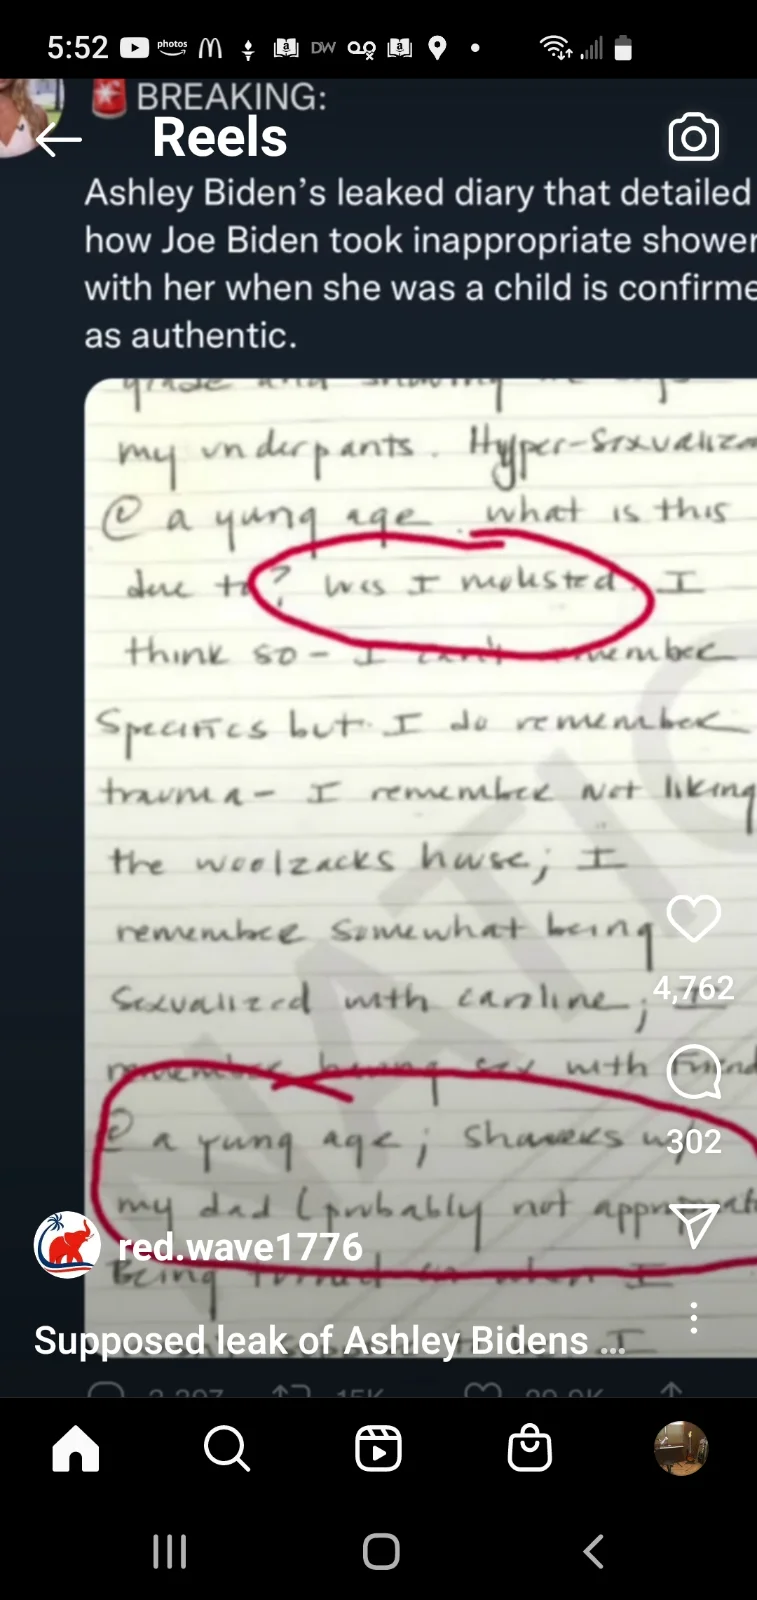 5:52 photos DW
BREAKING:
Reels
Ashley Biden's leaked diary that detailed
how Joe Biden took inappropriate shower
with her when she was a child is confirme
as authentic.
my underpants. Hyper-Sexualiza
@ a yung age. what is this
due to? Was I molested. I
think so - I can't remember
Specifics but I do remember
trauma - I remember not liking
the woolzacks house; I
remember somewhat being
sexualized with caroline; I
remember having sex with friend
@ a yung age; showers w/
my dad (probably not appropriat
Being turned on when I
I
4,762
302
red.wave1776
Supposed leak of Ashley Bidens ...
15K